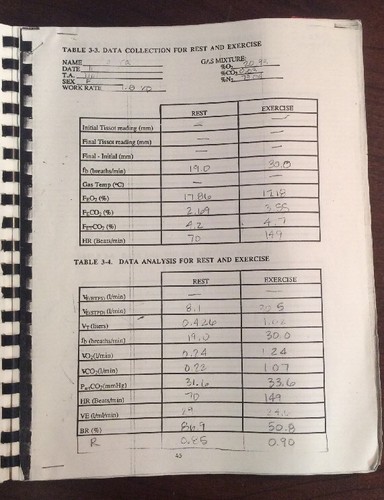 TABLE 3-3. DATA COLLECTION FOR REST AND EXERCISE
NAME GAS MIXTURE:
DATE %O₂
T.A. %CO₂
SEX F %N₂
WORK RATE
REST EXERCISE
Initial Tissot reading (mm) — —
Final Tissot reading (mm) — —
Final - Initial (mm) — —
fb (breaths/min) 19.0 30.0
Gas Temp (°C) — —
FEO₂ (%) 17.86 17.18
FECO₂ (%) 2.69 3.55
FETCO₂ (%) 4.2 4.7
HR (Beats/min) 70 149
TABLE 3-4. DATA ANALYSIS FOR REST AND EXERCISE
REST EXERCISE
(l/min) — —
(l/min) 8.1
VT (liters) 0.426
fb (breaths/min) 19.0 30.0
VO₂(l/min) 0.24 1.24
VCO₂(l/min) 1.07
CO₂(mmHg) 31.6 33.6
HR (Beats/min) 70 149
VE (l/min) 29
BR (%) 86.9 50.8
R 0.85 0.90